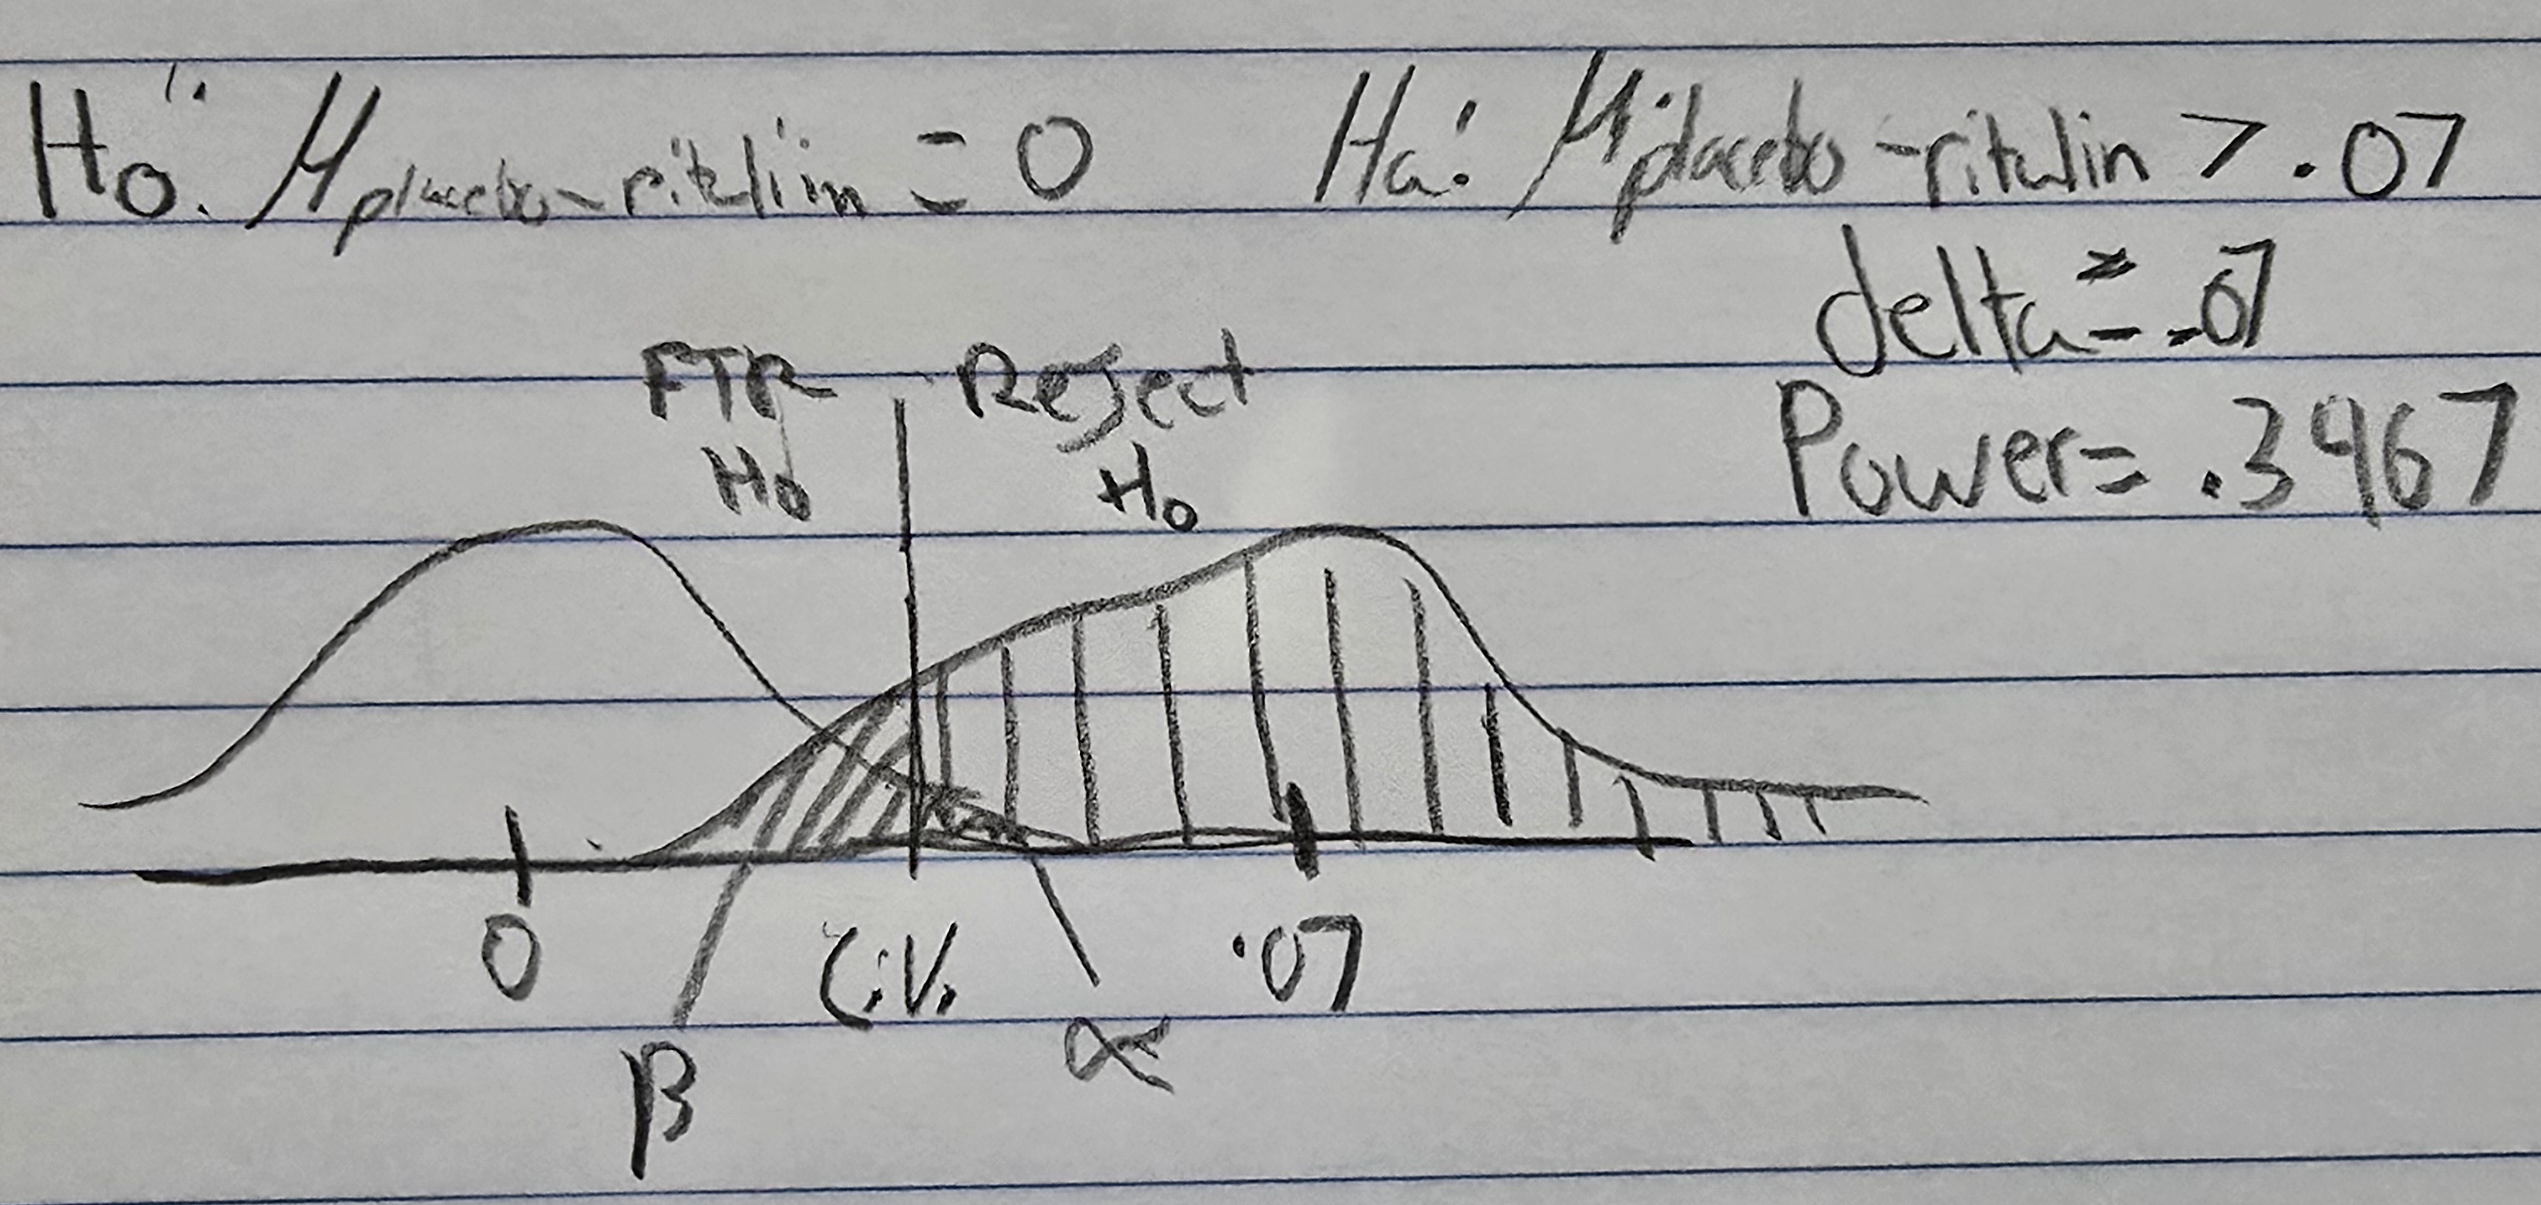 H₀: μ placebo-ritilin = 0 Ha: μ placebo-ritalin > .07
delta = .07
Power = .3967
FTR Reject
H₀ H₀
0 C.V. .07
β α